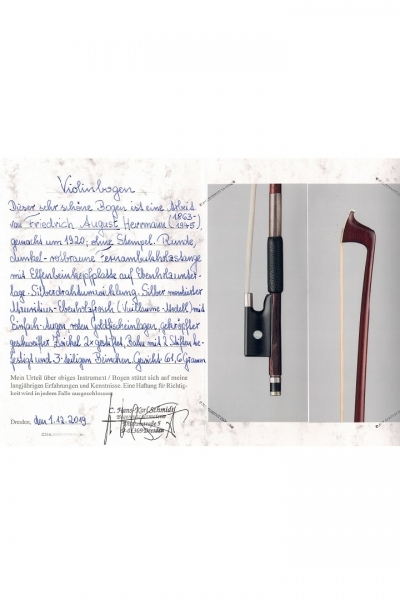 Violinbogen
Dieser sehr schöne Bogen ist eine Arbeit
von Friedrich August Herrmann (1863-
1945),
gemacht um 1920; ohne Stempel. Runde,
dunkel-rotbraune Fernambukholzstange
mit Elfenbeinkopfplatte auf Ebenholzunter-
lage. Silberdrahtumwicklung. Silber montierter
Mauritius-Ebenholzfrosch (Vuillaume-Modell) mit
Einfach-Augen, roten Goldfischeinlagen, gekröpfter
geschweifter Zwickel 2x gestiftet, Bahn mit 2 Stiften be-
festigt und 3-teiligem Beinchen. Gewicht: 61,6 Gramm
Mein Urteil über obiges Instrument / Bogen stützt sich auf meine
langjährigen Erfahrungen und Kenntnisse. Eine Haftung für Richtig-
keit wird in jedem Falle ausgeschlossen.
C. Hans-Karl Schmidt
Dresden, den 1.12.2019
D-01309 Dresden